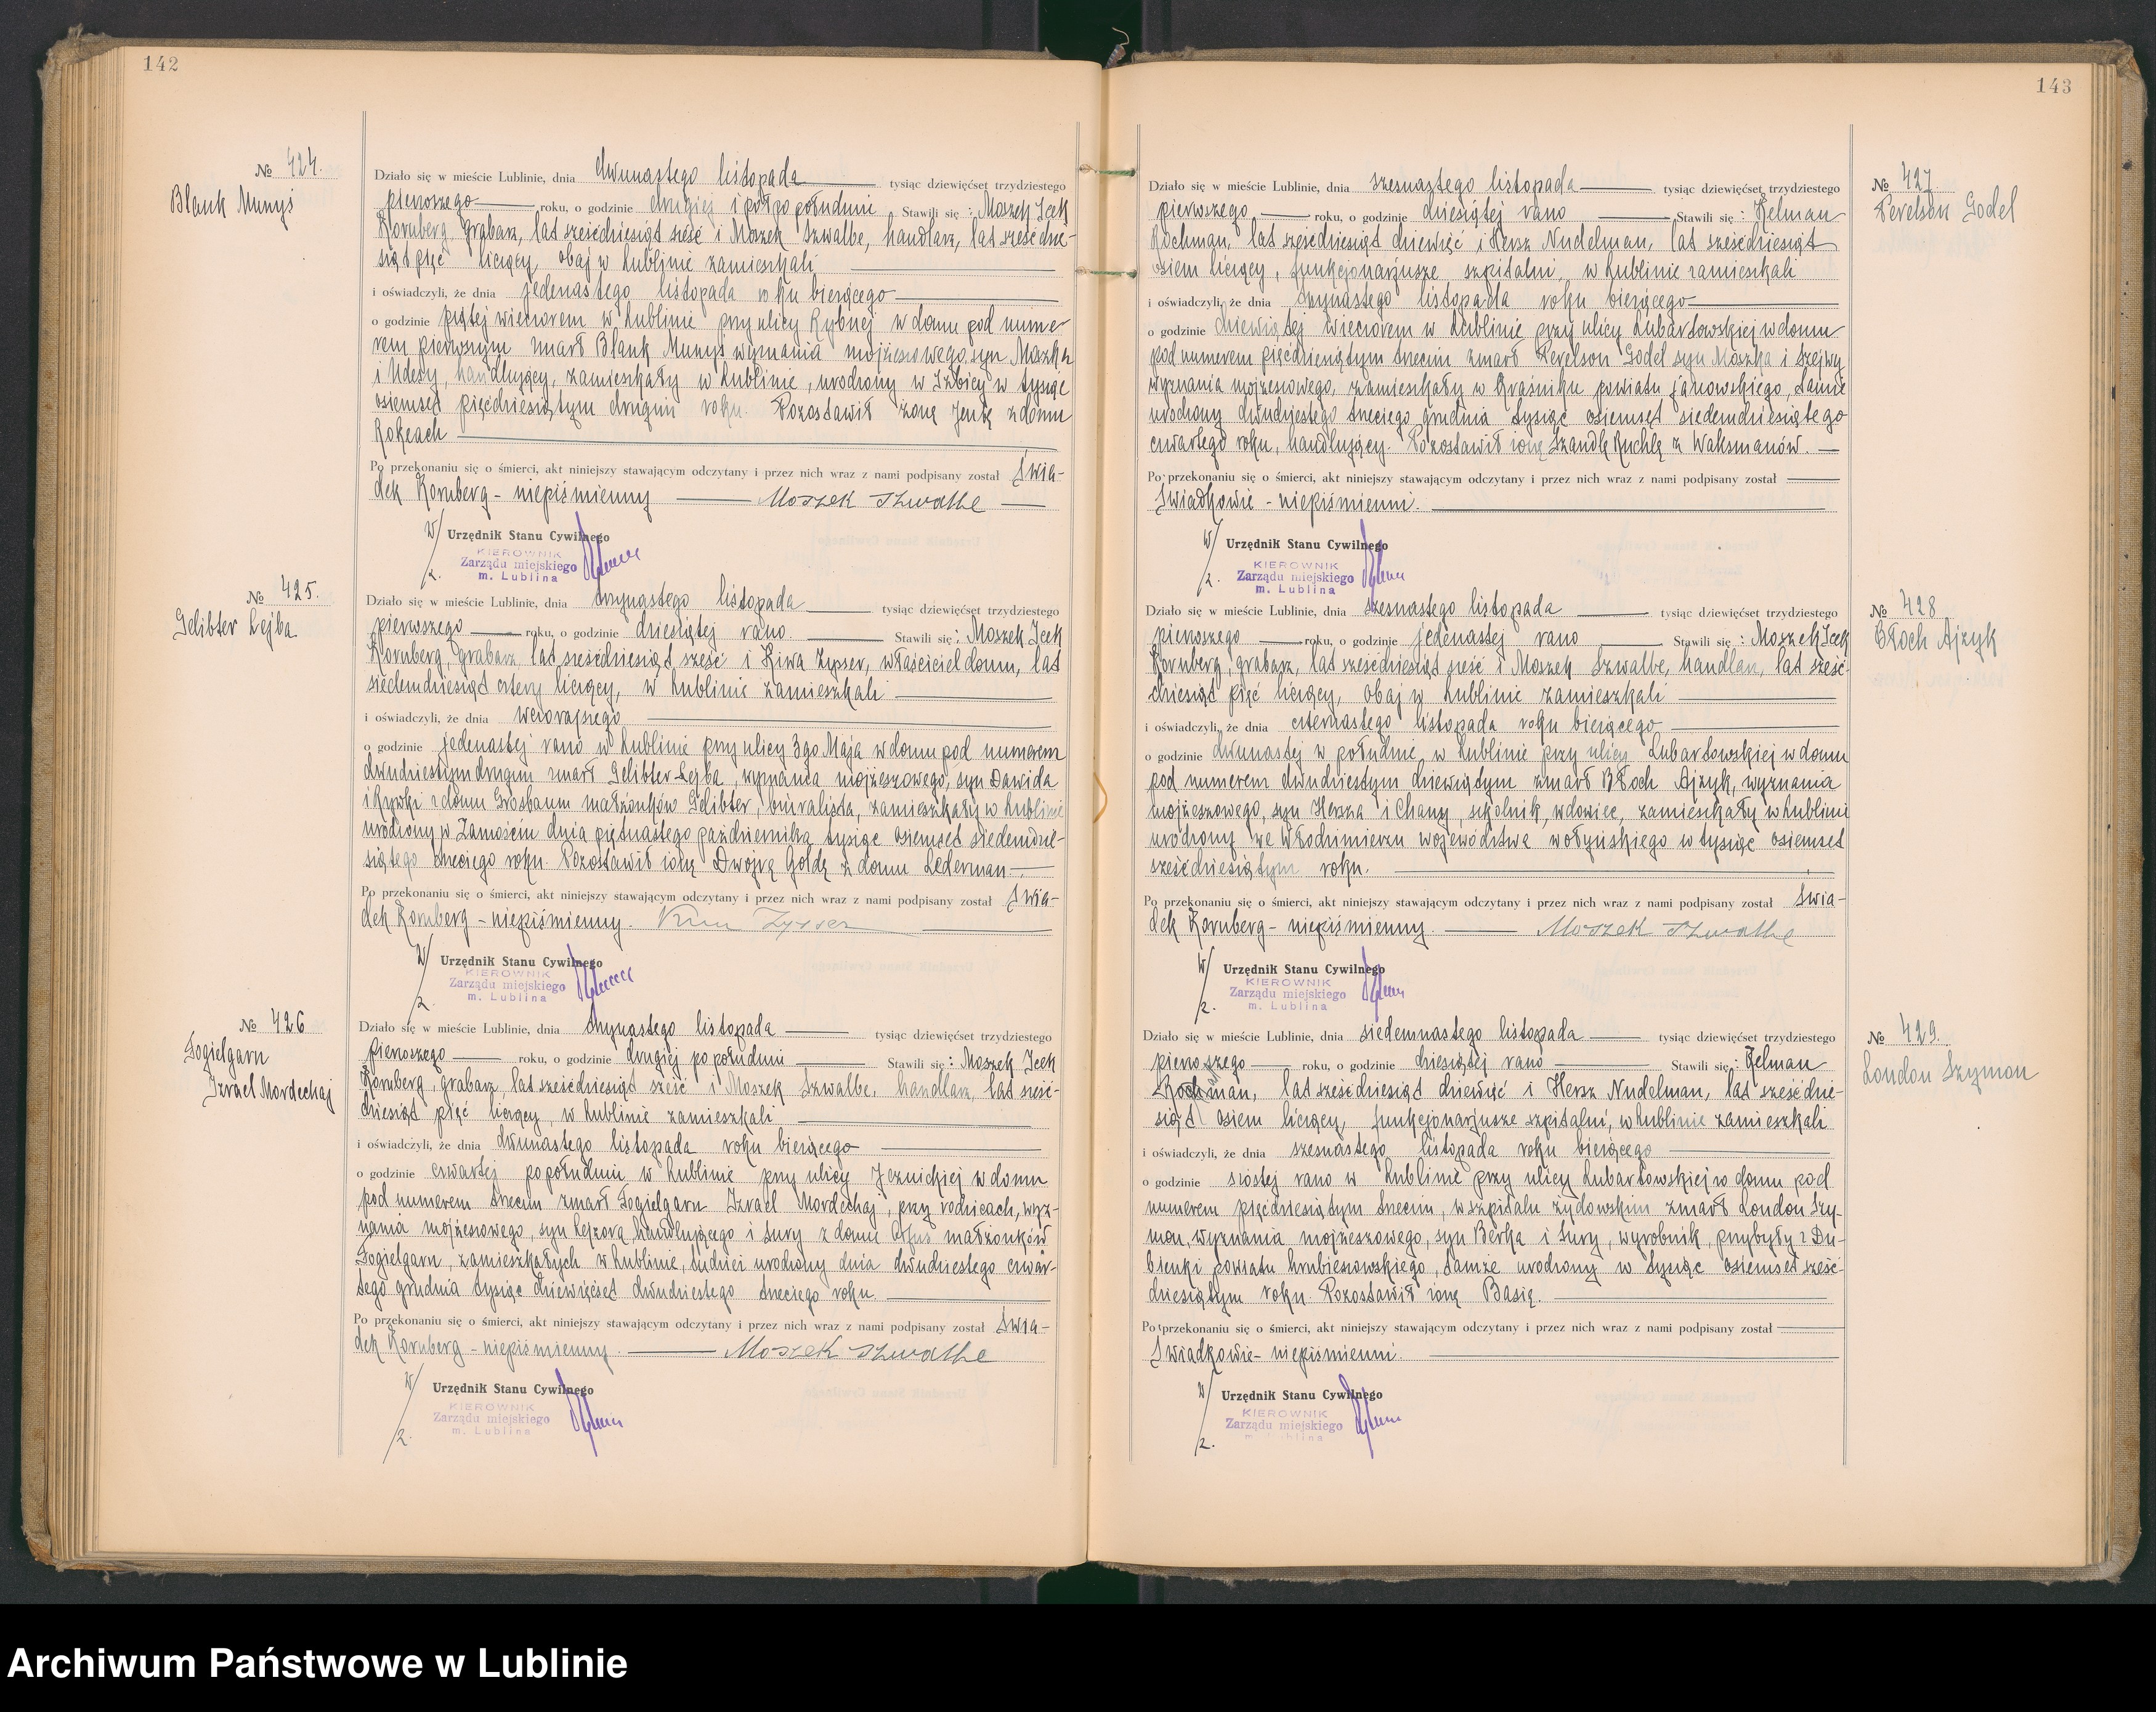 142
№ 424.
Blank Munyś
Działo się w mieście Lublinie, dnia dwunastego listopada tysiąc dziewięćset trzydziestego
pierwszego roku, o godzinie drugiej i pół po południu Stawili się: Moszek Icek
Kornberg, grabarz, lat sześćdziesiąt sześć i Moszek Szwalbe, handlarz, lat sześćdzie-
siąt pięć liczący, obaj w Lublinie zamieszkali
i oświadczyli, że dnia jedenastego listopada roku bieżącego
o godzinie piątej wieczorem w Lublinie przy ulicy Rybnej w domu pod nume-
rem pierwszym zmarł Blank Munyś wyznania mojżeszowego, syn Moszka
i Udesy, handlujący, zamieszkały w Lublinie, urodzony w Izbicy w tysiąc
osiemset pięćdziesiątym drugim roku. Pozostawił żonę Jentę z domu
Rokeach
Po przekonaniu się o śmierci, akt niniejszy stawającym odczytany i przez nich wraz z nami podpisany został Świa-
dek Kornberg - niepiśmienny Moszek Szwalbe
W/z. Urzędnik Stanu Cywilnego
KIEROWNIK
Zarządu miejskiego
m. Lublina
№ 425.
Gelibter Lejba
Działo się w mieście Lublinie, dnia trzynastego listopada tysiąc dziewięćset trzydziestego
pierwszego roku, o godzinie dziesiątej rano. Stawili się: Moszek Icek
Kornberg, grabarz, lat sześćdziesiąt sześć i Kiwa Zysser, właściciel domu, lat
siedemdziesiąt cztery liczący, w Lublinie zamieszkali
i oświadczyli, że dnia wczorajszego
o godzinie jedenastej rano w Lublinie przy ulicy 3go Maja w domu pod numerem
dwudziestym drugim zmarł Gelibter Lejba, wyznania mojżeszowego, syn Dawida
i Rywki z domu Grosbaum małżonków Gelibter, biuralista, zamieszkały w Lublinie
urodzony w Zamościu dnia piętnastego października tysiąc osiemset siedemdzie-
siątego trzeciego roku. Pozostawił żonę Dwojrę Gołdę z domu Lederman
Po przekonaniu się o śmierci, akt niniejszy stawającym odczytany i przez nich wraz z nami podpisany został Świa-
dek Kornberg - niepiśmienny. Kiwa Zysser
W/z. Urzędnik Stanu Cywilnego
KIEROWNIK
Zarządu miejskiego
m. Lublina
№ 426
Fogielgarn
Izrael Mordechaj
Działo się w mieście Lublinie, dnia trzynastego listopada tysiąc dziewięćset trzydziestego
pierwszego roku, o godzinie drugiej po południu Stawili się: Moszek Icek
Kornberg, grabarz, lat sześćdziesiąt sześć i Moszek Szwalbe, handlarz, lat sześć-
dziesiąt pięć liczący, w Lublinie zamieszkali
i oświadczyli, że dnia dwunastego listopada roku bieżącego
o godzinie czwartej po południu w Lublinie przy ulicy Jezuickiej w domu
pod numerem trzecim zmarł Fogielgarn Izrael Mordechaj, przy rodzicach, wyz-
nania mojżeszowego, syn Lejzora, handlującego i Sury z domu małżonków
Fogielgarn, zamieszkałych w Lublinie, tudzież urodzony dnia dwudziestego czwar-
tego grudnia tysiąc dziewięćset dwudziestego trzeciego roku.
Po przekonaniu się o śmierci, akt niniejszy stawającym odczytany i przez nich wraz z nami podpisany został Świa-
dek Kornberg - niepiśmienny. Moszek Szwalbe
W/z. Urzędnik Stanu Cywilnego
KIEROWNIK
Zarządu miejskiego
m. Lublina
143
№ 427
Perelson Godel
Działo się w mieście Lublinie, dnia szesnastego listopada tysiąc dziewięćset trzydziestego
pierwszego roku, o godzinie dziesiątej rano Stawili się: Kelman
Rochman, lat sześćdziesiąt dziewięć i Hersz Nudelman, lat sześćdziesiąt
osiem liczący, funkcjonarjusze szpitalni, w Lublinie zamieszkali
i oświadczyli, że dnia trzynastego listopada roku bieżącego
o godzinie dziewiątej wieczorem w Lublinie przy ulicy Lubartowskiej w domu
pod numerem pięćdziesiątym trzecim zmarł Perelson Godel syn Moszka i Szejwy
wyznania mojżeszowego, zamieszkały w Kraśniku powiatu janowskiego, tamże
urodzony dwudziestego trzeciego grudnia tysiąc osiemset siedemdziesiątego
czwartego roku, handlujący. Pozostawił żonę Szandlę Ruchlę z Waksmanów.
Po przekonaniu się o śmierci, akt niniejszy stawającym odczytany i przez nich wraz z nami podpisany został
Świadkowie - niepiśmienni.
W/z. Urzędnik Stanu Cywilnego
KIEROWNIK
Zarządu miejskiego
m. Lublina
№ 428
Błoch Ajzyk
Działo się w mieście Lublinie, dnia szesnastego listopada tysiąc dziewięćset trzydziestego
pierwszego roku, o godzinie jedenastej rano Stawili się: Moszek Icek
Kornberg, grabarz, lat sześćdziesiąt sześć i Moszek Szwalbe, handlarz, lat sześć-
dziesiąt pięć liczący, obaj w Lublinie zamieszkali
i oświadczyli, że dnia czternastego listopada roku bieżącego
o godzinie dwunastej w południe w Lublinie przy ulicy Lubartowskiej w domu
pod numerem dwudziestym dziewiątym zmarł Błoch Ajzyk, wyznania
mojżeszowego, syn Hersza i Chany, szkolnik, wdowiec, zamieszkały w Lublinie
urodzony we Włodzimierzu województwa wołyńskiego w tysiąc osiemset
sześćdziesiątym roku.
Po przekonaniu się o śmierci, akt niniejszy stawającym odczytany i przez nich wraz z nami podpisany został Świa-
dek Kornberg - niepiśmienny. Moszek Szwalbe
W/z. Urzędnik Stanu Cywilnego
KIEROWNIK
Zarządu miejskiego
m. Lublina
№ 429.
London Szymon
Działo się w mieście Lublinie, dnia siedemnastego listopada tysiąc dziewięćset trzydziestego
pierwszego roku, o godzinie dziesiątej rano Stawili się: Kelman
Rochman, lat sześćdziesiąt dziewięć i Hersz Nudelman, lat sześćdzie-
siąt osiem liczący, funkcjonarjusze szpitalni, w Lublinie zamieszkali
i oświadczyli, że dnia szesnastego listopada roku bieżącego
o godzinie szóstej rano w Lublinie przy ulicy Lubartowskiej w domu pod
numerem pięćdziesiątym trzecim, w szpitalu żydowskim zmarł London Szy-
mon, wyznania mojżeszowego, syn Berka i Sury, wyrobnik, przybyły z Du-
bienki powiatu hrubieszowskiego, tamże urodzony w tysiąc osiemset sześć-
dziesiątym roku. Pozostawił żonę Basię.
Po przekonaniu się o śmierci, akt niniejszy stawającym odczytany i przez nich wraz z nami podpisany został
Świadkowie - niepiśmienni.
W/z. Urzędnik Stanu Cywilnego
KIEROWNIK
Zarządu miejskiego
m. Lublina
Archiwum Państwowe w Lublinie